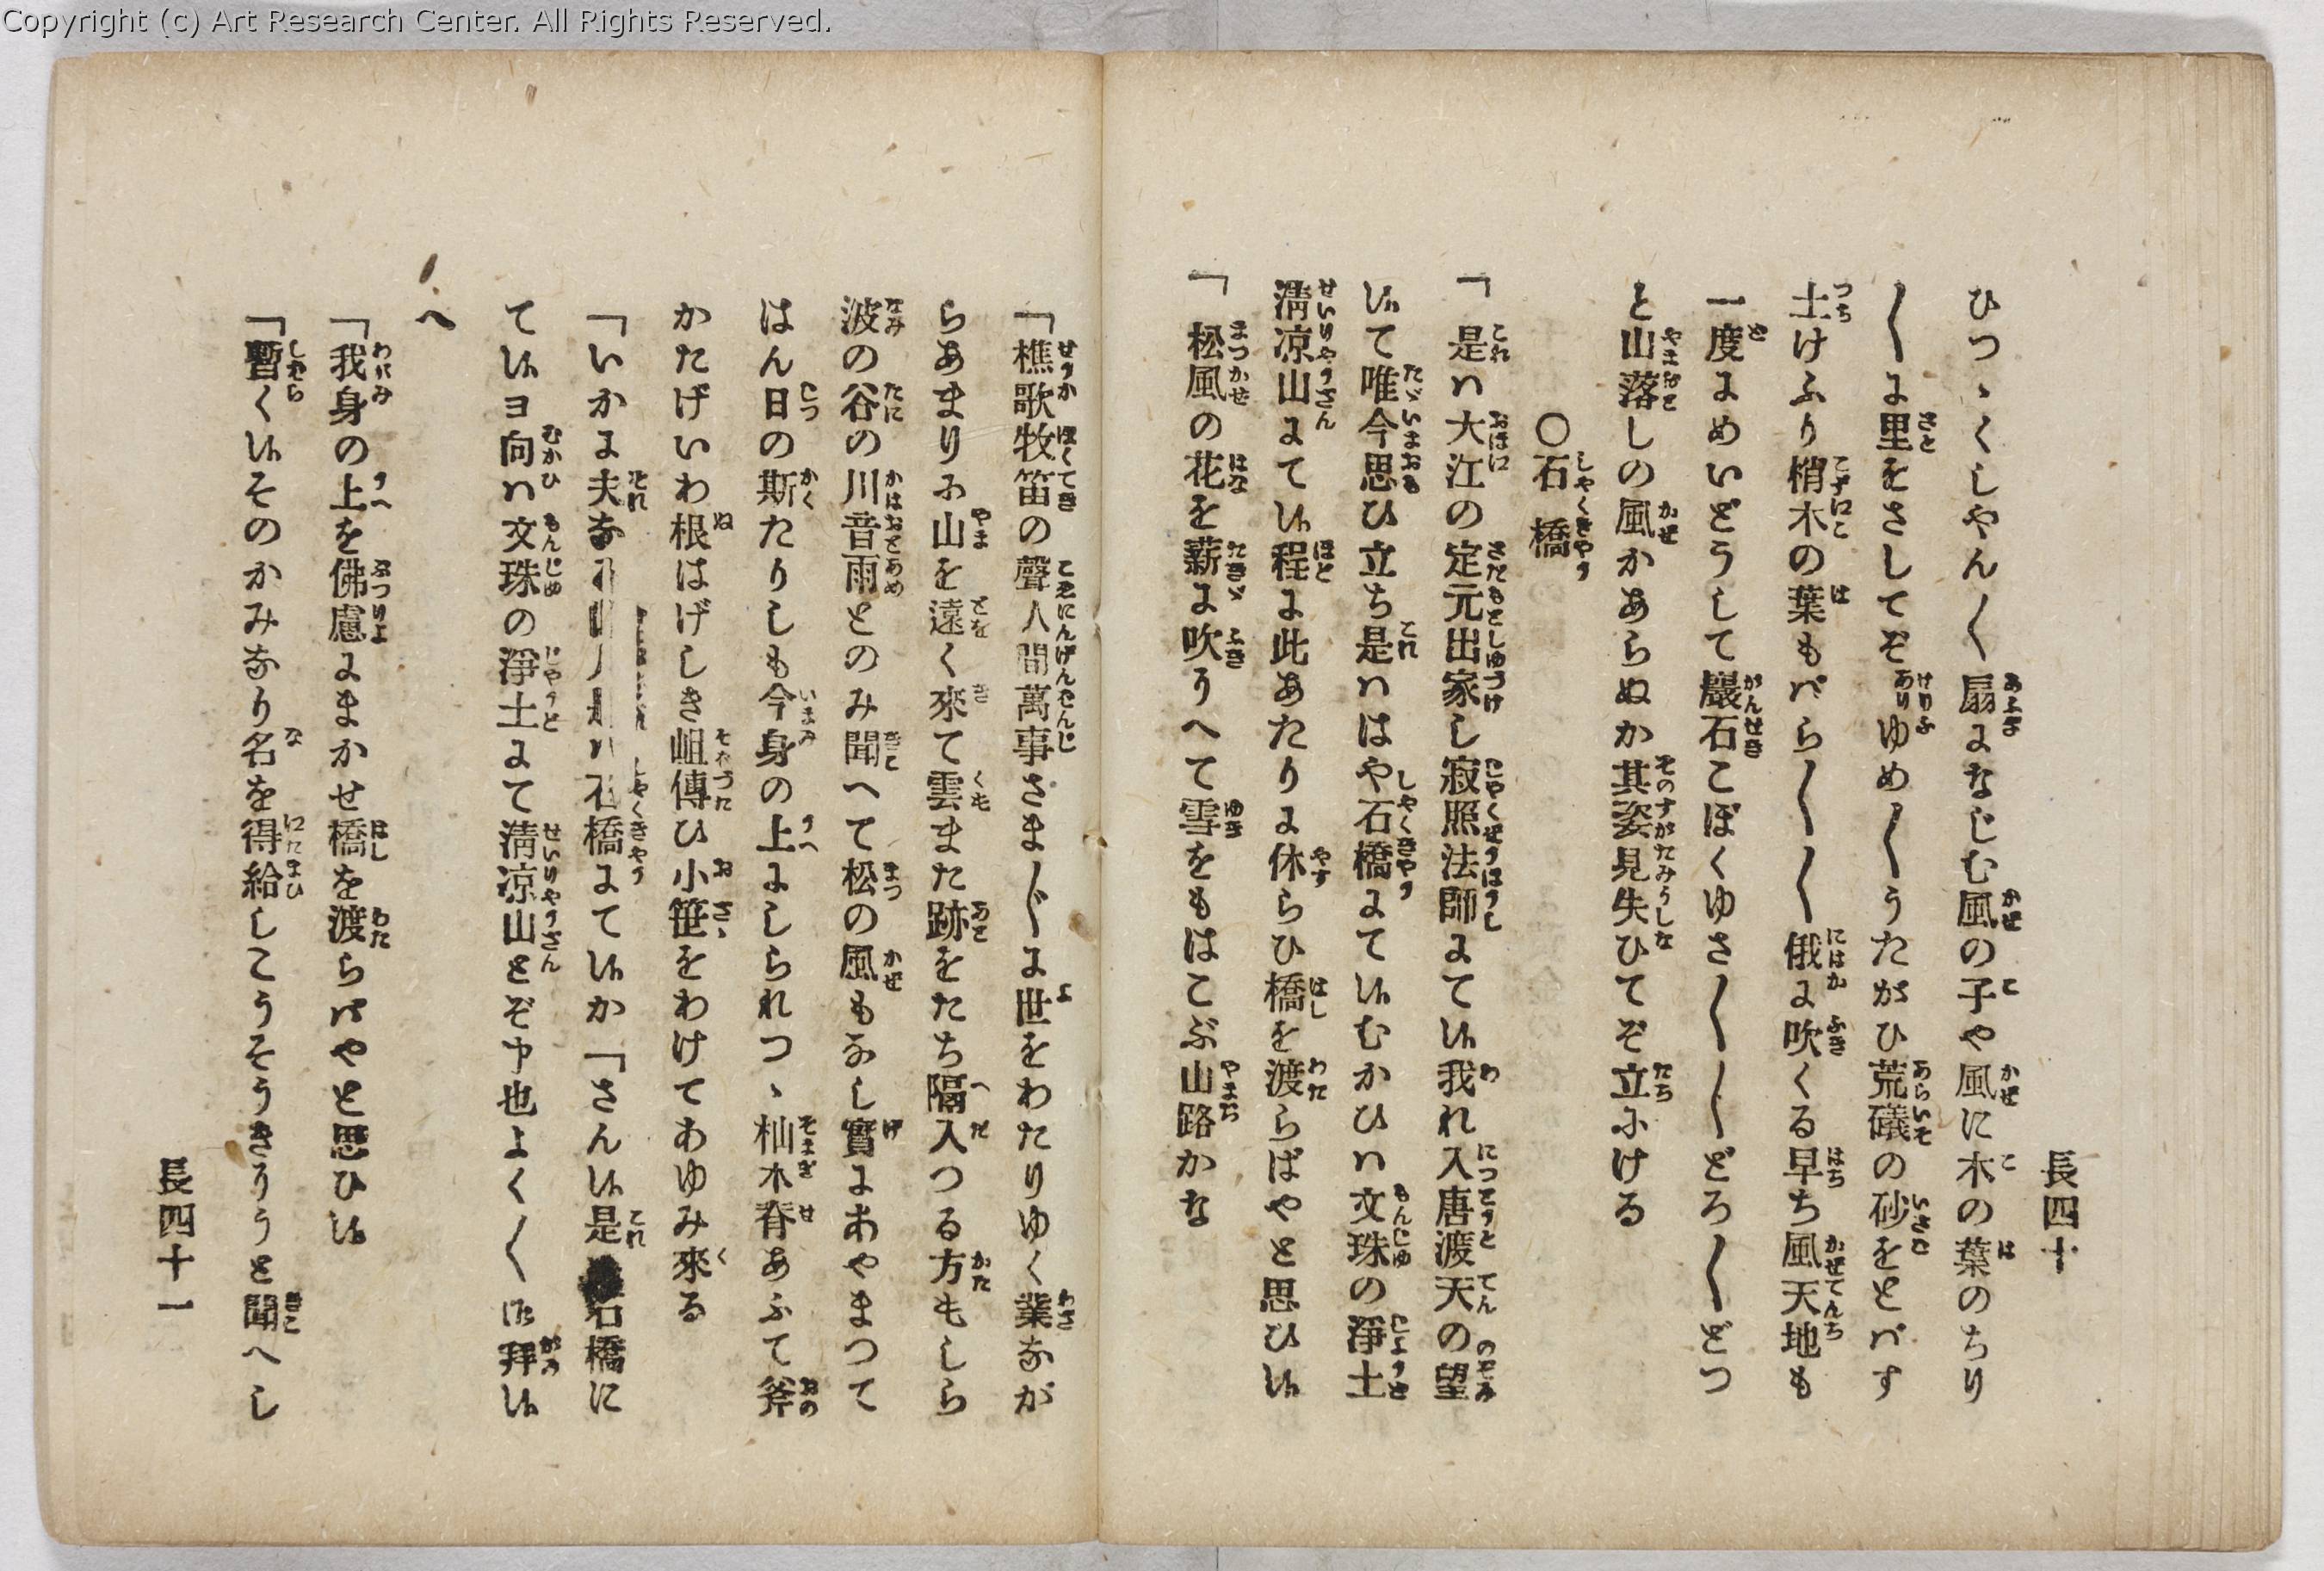 Copyright (c) Art Research Center. All Rights Reserved.
長四十
ひつゝくしやん〱扇になじむ風の子や風に木の葉のちり
〱に里をさしてぞゆめ〱うたがひ荒礒の砂をとバす
土けふり梢木の葉もバら〱〱俄に吹くる早ち風天地も
一度にめいどうして巖石こぼくゆさ〱〱どろ〱どつ
と山落しの風かあらぬか其姿見失ひてぞ立にける
〇石橋
「是ハ大江の定元出家し寂照法師にて候我れ入唐渡天の望
候て唯今思ひ立ち是ハはや石橋にて候むかひハ文珠の淨土
淸凉山にて候程に此あたりに休らひ橋を渡らばやと思ひ候
「松風の花を薪に吹うへて雪をもはこぶ山路かな
「樵歌牧笛の聲人間萬事さま〴〵に世をわたりゆく業なが
らあまりに山を遠く來て雲また跡をたち隔入つる方もしら
波の谷の川音雨とのみ聞へて松の風もなし實にあやまつて
はん日の斯たりしも今身の上にしられつゝ杣木脊あふて斧
かたげいわ根はげしき岨傳ひ小笹をわけてあゆみ來る
「いかに夫な石橋にて候か「さん候是石橋に
て候ヨ向ハ文珠の淨土にて淸凉山とぞ申也よく〱御拜候
へ
「我身の上を佛慮にまかせ橋を渡らバやと思ひ候
「暫く候そのかみなり名を得給しこうそうきうと聞へし
長四十一